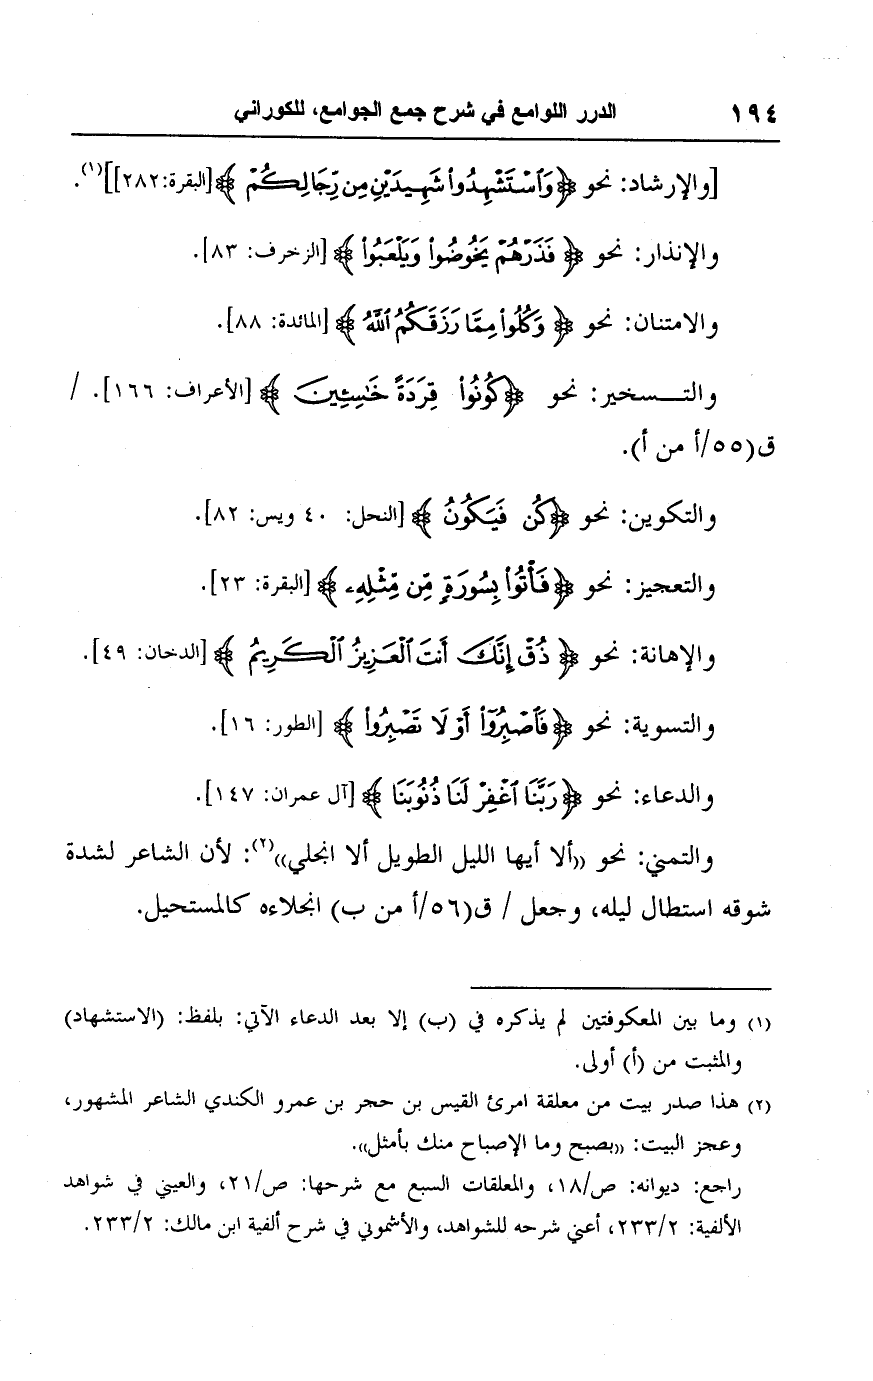 ١٩٤ الدرر اللوامع في شرح جمع الجوامع، للكوراني
[والإرشاد: نحو ﴿وَٱسْتَشْهِدُواْ شَهِيدَيْنِ مِن رِّجَالِكُمْ﴾ [البقرة: ٢٨٢]](١).
والإنذار: نحو ﴿فَذَرْهُمْ يَخُوضُواْ وَيَلْعَبُواْ﴾ [الزخرف: ٨٣].
والامتنان: نحو ﴿وَكُلُواْ مِمَّا رَزَقَكُمُ ٱللَّهُ﴾ [المائدة: ٨٨].
والتـــسخير: نحو ﴿كُونُواْ قِرَدَةً خَٰسِـِٔينَ﴾ [الأعراف: ١٦٦]. /
ق(٥٥/أ من أ).
والتكوين: نحو ﴿كُن فَيَكُونُ﴾ [النحل: ٤٠ ويس: ٨٢].
والتعجيز: نحو ﴿فَأْتُواْ بِسُورَةٍ مِّن مِّثْلِهِۦ﴾ [البقرة: ٢٣].
والإهانة: نحو ﴿ذُقْ إِنَّكَ أَنتَ ٱلْعَزِيزُ ٱلْكَرِيمُ﴾ [الدخان: ٤٩].
والتسوية: نحو ﴿فَٱصْبِرُوٓاْ أَوْ لَا تَصْبِرُواْ﴾ [الطور: ١٦].
والدعاء: نحو ﴿رَبَّنَا ٱغْفِرْ لَنَا ذُنُوبَنَا﴾ [آل عمران: ١٤٧].
والتمني: نحو ((ألا أيها الليل الطويل ألا انجلي))(٢): لأن الشاعر لشدة
شوقه استطال ليله، وجعل / ق(٥٦/أ من ب) انجلاءه كالمستحيل.
(١) وما بين المعكوفتين لم يذكره في (ب) إلا بعد الدعاء الآتي: بلفظ: (الاستشهاد)
والمثبت من (أ) أولى.
(٢) هذا صدر بيت من معلقة امرئ القيس بن حجر بن عمرو الكندي الشاعر المشهور،
وعجز البيت: ((بصبح وما الإصباح منك بأمثل)).
راجع: ديوانه: ص/١٨، والمعلقات السبع مع شرحها: ص/٢١، والعيني في شواهد
الألفية: ٢٣٣/٢، أعني شرحه للشواهد، والأشموني في شرح ألفية ابن مالك: ٢٣٣/٢.